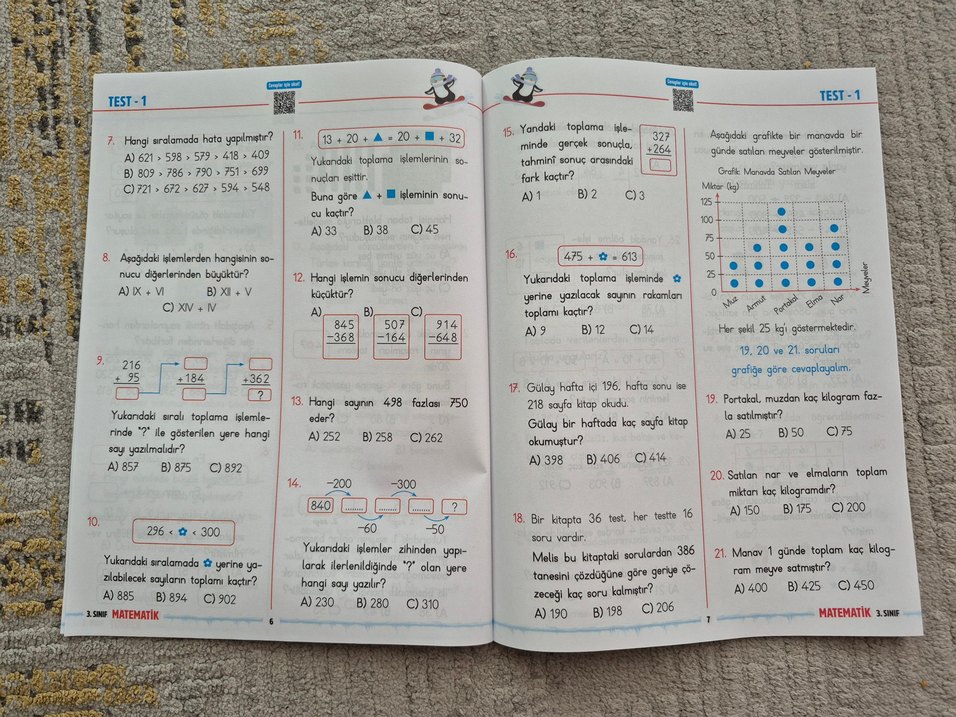 Cevaplar için okut!
TEST - 1
7. Hangi sıralamada hata yapılmıştır?
A) 621 > 598 > 579 > 418 > 409
B) 809 > 786 > 790 > 751 > 699
C) 721 > 672 > 627 > 594 > 548
8. Aşağıdaki işlemlerden hangisinin so-
nucu diğerlerinden büyüktür?
A) IX + VI B) XII + V
C) XIV + IV
9.
216
+ 95
+184
+362
?
Yukarıdaki sıralı toplama işlemle-
rinde "?" ile gösterilen yere hangi
sayı yazılmalıdır?
A) 857 B) 875 C) 892
10.
296 < < 300
Yukarıdaki sıralamada yerine ya-
zılabilecek sayıların toplamı kaçtır?
A) 885 B) 894 C) 902
3. SINIF MATEMATİK
11.
13 + 20 + ▲ = 20 + ■ + 32
Yukarıdaki toplama işlemlerinin so-
nuçları eşittir.
Buna göre ▲ + ■ işleminin sonu-
cu kaçtır?
A) 33 B) 38 C) 45
12. Hangi işlemin sonucu diğerlerinden
küçüktür?
A) B) C)
845 507 914
-368 -164 -648
13. Hangi sayının 498 fazlası 750
eder?
A) 252 B) 258 C) 262
14.
-200 -300
840 ........ ........ ........ ?
-60 -50
Yukarıdaki işlemler zihinden yapı-
larak ilerlenildiğinde "?" olan yere
hangi sayı yazılır?
A) 230 B) 280 C) 310
6
Cevaplar için okut!
TEST - 1
15. Yandaki toplama işle-
minde gerçek sonuçla,
tahminî sonuç arasındaki
fark kaçtır?
327
+264
A) 1 B) 2 C) 3
16.
475 + = 613
Yukarıdaki toplama işleminde
yerine yazılacak sayının rakamları
toplamı kaçtır?
A) 9 B) 12 C) 14
17. Gülay hafta içi 196, hafta sonu ise
218 sayfa kitap okudu.
Gülay bir haftada kaç sayfa kitap
okumuştur?
A) 398 B) 406 C) 414
18. Bir kitapta 36 test, her testte 16
soru vardır.
Melis bu kitaptaki sorulardan 386
tanesini çözdüğüne göre geriye çö-
zeceği kaç soru kalmıştır?
A) 190 B) 198 C) 206
7
Aşağıdaki grafikte bir manavda bir
günde satılan meyveler gösterilmiştir.
Grafik: Manavda Satılan Meyveler
Miktar (kg)
125
100
75
50
25
0
Muz Armut Portakal Elma Nar
Meyveler
Her şekil 25 kg'ı göstermektedir.
19, 20 ve 21. soruları
grafiğe göre cevaplayalım.
19. Portakal, muzdan kaç kilogram faz-
la satılmıştır?
A) 25 B) 50 C) 75
20. Satılan nar ve elmaların toplam
miktarı kaç kilogramdır?
A) 150 B) 175 C) 200
21. Manav 1 günde toplam kaç kilog-
ram meyve satmıştır?
A) 400 B) 425 C) 450
MATEMATİK 3. SINIF